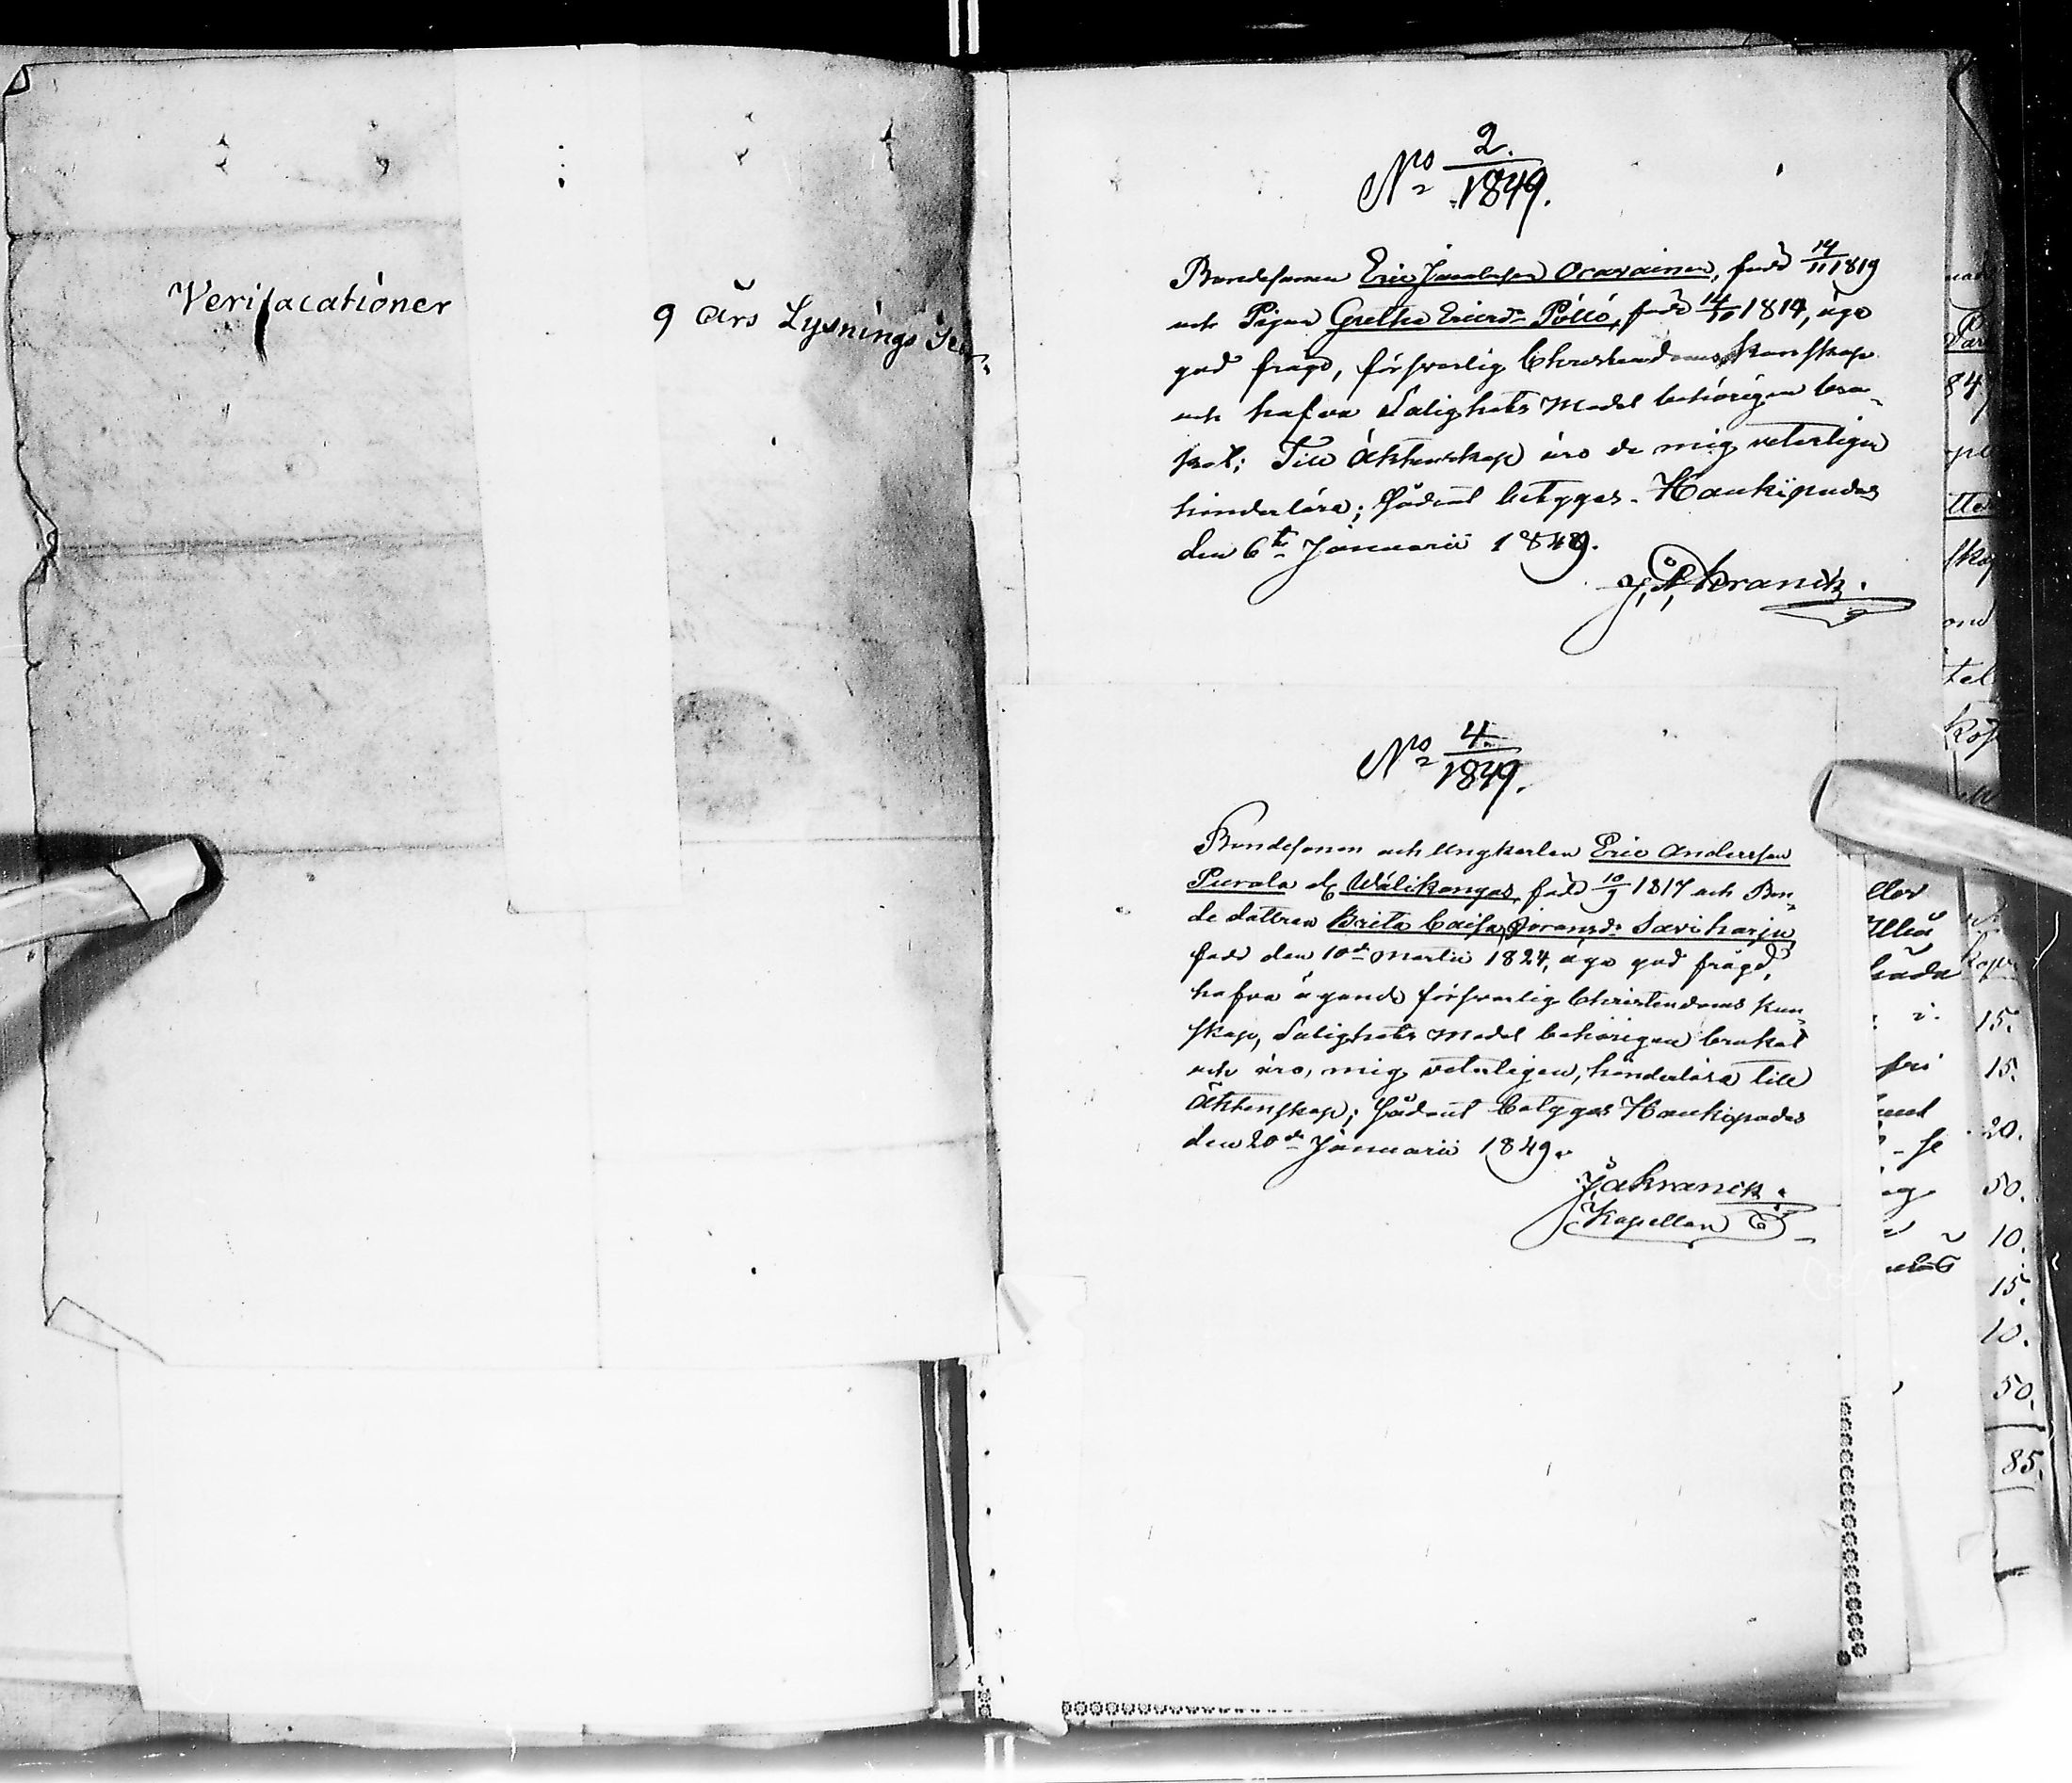 Verifacationer
9 Års Lysnings
Nro 2./1849.
Bondesonen Eric Jacobsson Oravainen, född 14/11 1819
och Pigan Gretha Ericsdr Pöllö, född 14/10 1814, äga
god frägd, försvarlig Christendoms kunskap
och hafva Salighets Medel behörigen bru-
kat; Till Äktenskap äro de mig veterligen
hinderlösa; Sådant betygas. Haukipudas
den 6te Januarii 1849.
J. Åkranck.
Nro 4./1849.
Bondesonen och Ungkarlen Eric Andersson
Purola Wälikangas, född 10/9 1817 och Bon-
de dottren Brita Caisa Göransdr Saviharju
född den 10de Martii 1824, äga god frägd,
hafva ägande försvarlig Christendoms kun-
skap, Salighets Medel behörigen brukat
och äro, mig veterligen, hinderlösa till
Äktenskap; Sådant betygas Haukipudas
den 20de Januarii 1849.
J. Åkranck.
Kapellan
15.
15.
20.
50.
10.
15.
10.
50.
85.